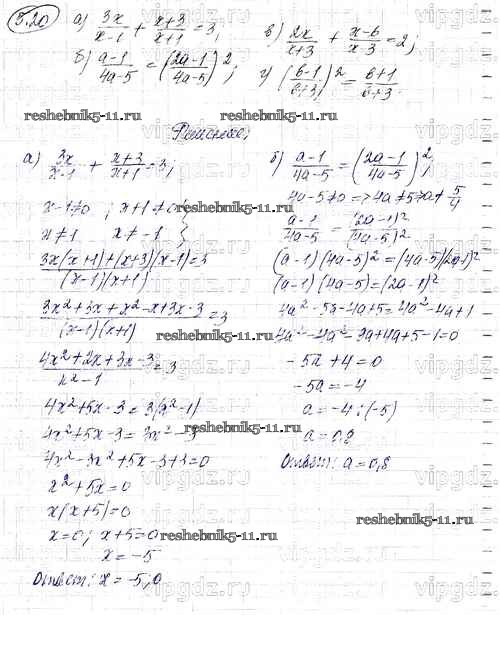 5.20 а) 3x/(x-1) + (x+3)/(x+1) = 3; в) 2x/(x+3) + (x-6)/(x-3) = 2;
б) (a-1)/(4a-5) = ((2a-1)/(4a-5))²; г) ((в-1)/(в+3))² = (в+1)/(в+3).
reshebnik5-11.ru reshebnik5-11.ru
Решение;
а) 3x/(x-1) + (x+3)/(x+1) = 3;
x-1≠0 ; x+1≠0 }
x≠1 x≠-1
(3x(x+1)+(x+3)(x-1))/((x-1)(x+1)) = 3
(3x²+3x+x²-x+3x-3)/((x-1)(x+1)) = 3
(4x²+2x+3x-3)/(x²-1) = 3
4x²+5x-3=3(x²-1)
4x²+5x-3=3x²-3
4x²-3x²+5x-3+3=0
x²+5x=0
x(x+5)=0
x=0; x+5=0
x=-5
Ответ: x=-5;0
б) (a-1)/(4a-5) = ((2a-1)/(4a-5))²;
4a-5≠0 => 4a≠5 => a≠ 5/4
(a-1)/(4a-5) = (2a-1)²/(4a-5)²
(a-1)(4a-5)²=(4a-5)(2a-1)²
(a-1)(4a-5)=(2a-1)²
4a²-5a-4a+5=4a²-4a+1
4a²-4a²-9a+4a+5-1=0
-5a+4=0
-5a=-4
a=-4:(-5)
a=0,8
Ответ: a=0,8
reshebnik5-11.ru
reshebnik5-11.ru
reshebnik5-11.ru
vipgdz.ru